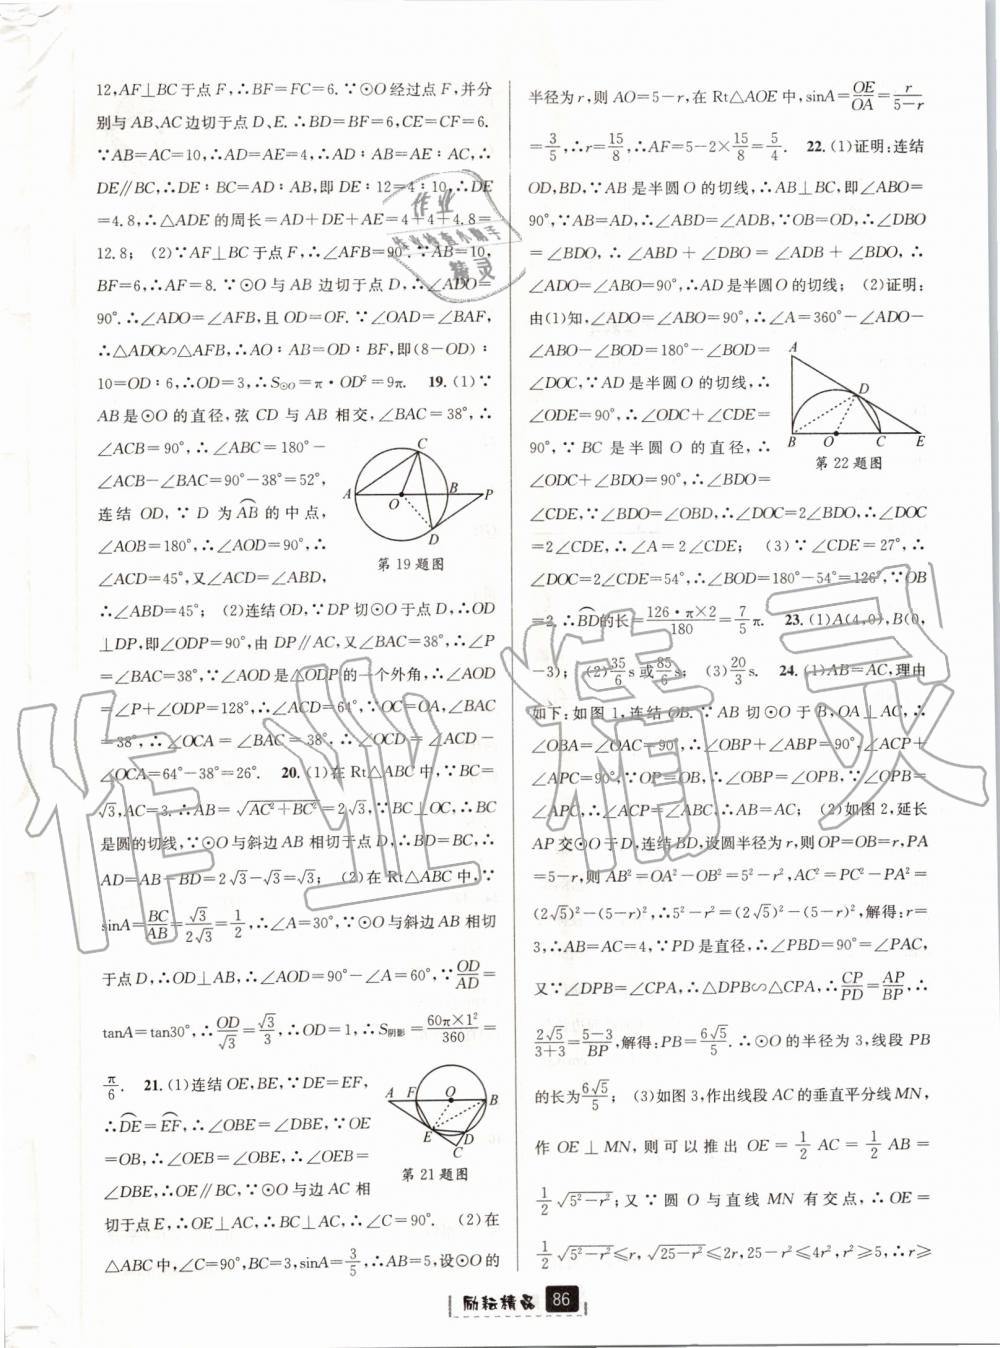 12,AF⊥BC于点F,∴BF=FC=6.∵⊙O经过点F,并分
别与AB、AC边切于点D、E.∴BD=BF=6,CE=CF=6.
∵AB=AC=10,∴AD=AE=4,∴AD∶AB=AE∶AC,∴
DE∥BC,∴DE∶BC=AD∶AB,即DE∶12=4∶10,∴DE
=4.8,∴△ADE的周长=AD+DE+AE=4+4+4.8=
12.8; (2)∵AF⊥BC于点F,∴∠AFB=90°.∵AB=10,
BF=6,∴AF=8.∵⊙O与AB边切于点D,∴∠ADO=
90°.∴∠ADO=∠AFB,且OD=OF.∵∠OAD=∠BAF,
∴△ADO∽△AFB,∴AO∶AB=OD∶BF,即(8-OD)∶
10=OD∶6,∴OD=3,∴S⊙O=π·OD²=9π. 19.(1)∵
AB是⊙O的直径,弦CD与AB相交,∠BAC=38°,∴
∠ACB=90°,∴∠ABC=180°-
∠ACB-∠BAC=90°-38°=52°,
连结OD,∵D为⌒AB的中点,
∠AOB=180°,∴∠AOD=90°,∴
∠ACD=45°,又∠ACD=∠ABD,
∴∠ABD=45°; (2)连结OD,∵DP切⊙O于点D,∴OD
⊥DP,即∠ODP=90°,由DP∥AC,又∠BAC=38°,∴∠P
=∠BAC=38°,∵∠AOD是△ODP的一个外角,∴∠AOD
=∠P+∠ODP=128°,∴∠ACD=64°,∵OC=OA,∠BAC
=38°,∴∠OCA=∠BAC=38°,∴∠OCD=∠ACD-
∠OCA=64°-38°=26°. 20.(1)在Rt△ABC中,∵BC=
√3,AC=3.∴AB=√(AC²+BC²)=2√3,∵BC⊥OC,∴BC
是圆的切线,∵⊙O与斜边AB相切于点D,∴BD=BC,∴
AD=AB-BD=2√3-√3=√3; (2)在Rt△ABC中,∵
sinA=BC/AB=√3/2√3=1/2,∴∠A=30°,∵⊙O与斜边AB相切
于点D,∴OD⊥AB,∴∠AOD=90°-∠A=60°,∵OD/AD=
tanA=tan30°,∴OD/√3=√3/3,∴OD=1,∴S阴影=60π×1²/360=
π/6. 21.(1)连结OE,BE,∵DE=EF,
∴⌒DE=⌒EF,∴∠OBE=∠DBE,∵OE
=OB,∴∠OEB=∠OBE,∴∠OEB=
∠DBE,∴OE∥BC,∵⊙O与边AC相
切于点E,∴OE⊥AC,∴BC⊥AC,∴∠C=90°. (2)在
△ABC中,∠C=90°,BC=3,sinA=3/5,∴AB=5,设⊙O的
A
B
C
D
O
P
第19题图
A
F
O
B
E
D
C
第21题图
半径为r,则AO=5-r,在Rt△AOE中,sinA=OE/OA=r/(5-r)
=3/5,∴r=15/8,∴AF=5-2×15/8=5/4. 22.(1)证明:连结
OD,BD,∵AB是半圆O的切线,∴AB⊥BC,即∠ABO=
90°,∵AB=AD,∴∠ABD=∠ADB,∵OB=OD,∴∠DBO
=∠BDO,∴∠ABD+∠DBO=∠ADB+∠BDO,
∴∠ADO=∠ABO=90°,∴AD是半圆O的切线; (2)证明:
由(1)知,∠ADO=∠ABO=90°,∴∠A=360°-∠ADO-
∠ABO-∠BOD=180°-∠BOD=
∠DOC,∵AD是半圆O的切线,∴
∠ODE=90°,∴∠ODC+∠CDE=
90°,∵BC是半圆O的直径,∴
∠ODC+∠BDO=90°,∴∠BDO=
∠CDE,∵∠BDO=∠OBD,∴∠DOC=2∠BDO,∴∠DOC
=2∠CDE,∴∠A=2∠CDE; (3)∵∠CDE=27°,∴
∠DOC=2∠CDE=54°,∴∠BOD=180°-54°=126°,∵OB
=2,∴⌒BD的长=126·π×2/180=7/5π. 23.(1)A(4,0),B(0,
-3); (2)35/6s或85/6s; (3)20/3s. 24.(1)AB=AC,理由
如下:如图1,连结OB.∵AB切⊙O于B,OA⊥AC,∴
∠OBA=∠OAC=90°,∴∠OBP+∠ABP=90°,∠ACP+
∠APC=90°,∵OP=OB,∴∠OBP=∠OPB,∵∠OPB=
∠APC,∴∠ACP=∠ABC,∴AB=AC; (2)如图2,延长
AP交⊙O于D,连结BD,设圆半径为r,则OP=OB=r,PA
=5-r,则AB²=OA²-OB²=5²-r²,AC²=PC²-PA²=
(2√5)²-(5-r)²,∴5²-r²=(2√5)²-(5-r)²,解得:r=
3,∴AB=AC=4,∵PD是直径,∴∠PBD=90°=∠PAC,
又∵∠DPB=∠CPA,∴△DPB∽△CPA,∴CP/PD=AP/BP,∴
2√5/(3+3)=(5-3)/BP,解得:PB=6√5/5.∴⊙O的半径为3,线段PB
的长为6√5/5; (3)如图3,作出线段AC的垂直平分线MN,
作OE⊥MN,则可以推出OE=1/2AC=1/2AB=
1/2√(5²-r²);又∵圆O与直线MN有交点,∴OE=
1/2√(5²-r²)≤r,√(25-r²)≤2r,25-r²≤4r²,r²≥5,∴r≥
A
D
B
O
C
E
第22题图
励耘精品 86
作业精灵